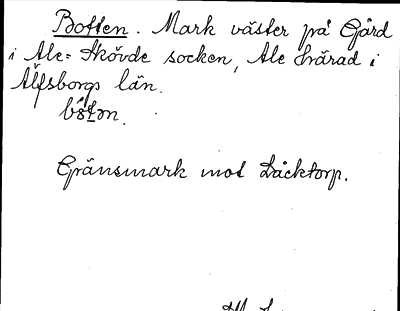 Botten. Mark väster på Gård
i Ale-Skövde socken, Ale härad i
Älfsborgs län.
bótən.
Gränsmark mot Läcktorp.